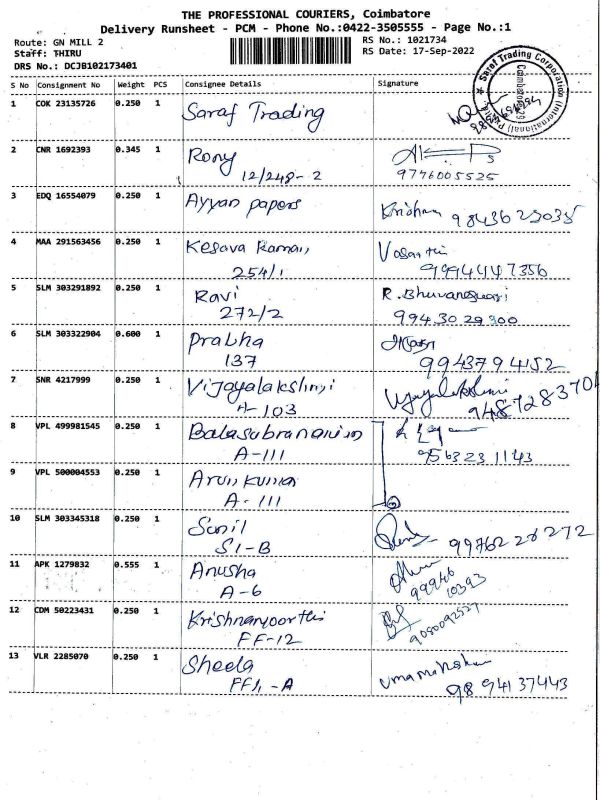 THE PROFESSIONAL COURIERS, Coimbatore
Delivery Runsheet - PCM - Phone No.:0422-3505555 - Page No.:1
Route: GN MILL 2 RS No.: 1021734
Staff: THIRU RS Date: 17-Sep-2022
DRS No.: DCJB102173401
S No Consignment No Weight PCS Consignee Details Signature
Saraf Trading Corporation (International) Coimbatore-29
1 COK 23135726 0.250 1 Saraf Trading
2 CNR 1692393 0.345 1 Rony
12/248-2 9776005525
3 EDQ 16554079 0.250 1 Ayyan papers Krishna 9843623035
4 MAA 291563456 0.250 1 Kesava Raman Vasanthi
254/1 9994447356
5 SLM 303291892 0.250 1 Ravi R.Bhuvaneswari
272/2 9943029300
6 SLM 303322904 0.600 1 Prabha
137 9943794152
7 SNR 4217999 0.250 1 Vijayalakshmi Vijayalakshmi
A-103 9487283701
8 VPL 499981545 0.250 1 Balasubramanium
A-111 9563231143
9 VPL 500004553 0.250 1 Arun kumar
A-111
10 SLM 303345318 0.250 1 Sunil
S1-B 9976226272
11 APK 1279832 0.555 1 Anusha
A-6 99946 10393
12 CDM 50223431 0.250 1 Krishnamoorthi
FF-12 9080092537
13 VLR 2285070 0.250 1 Sheela Umamaheshwari
FF1-A 9894137443